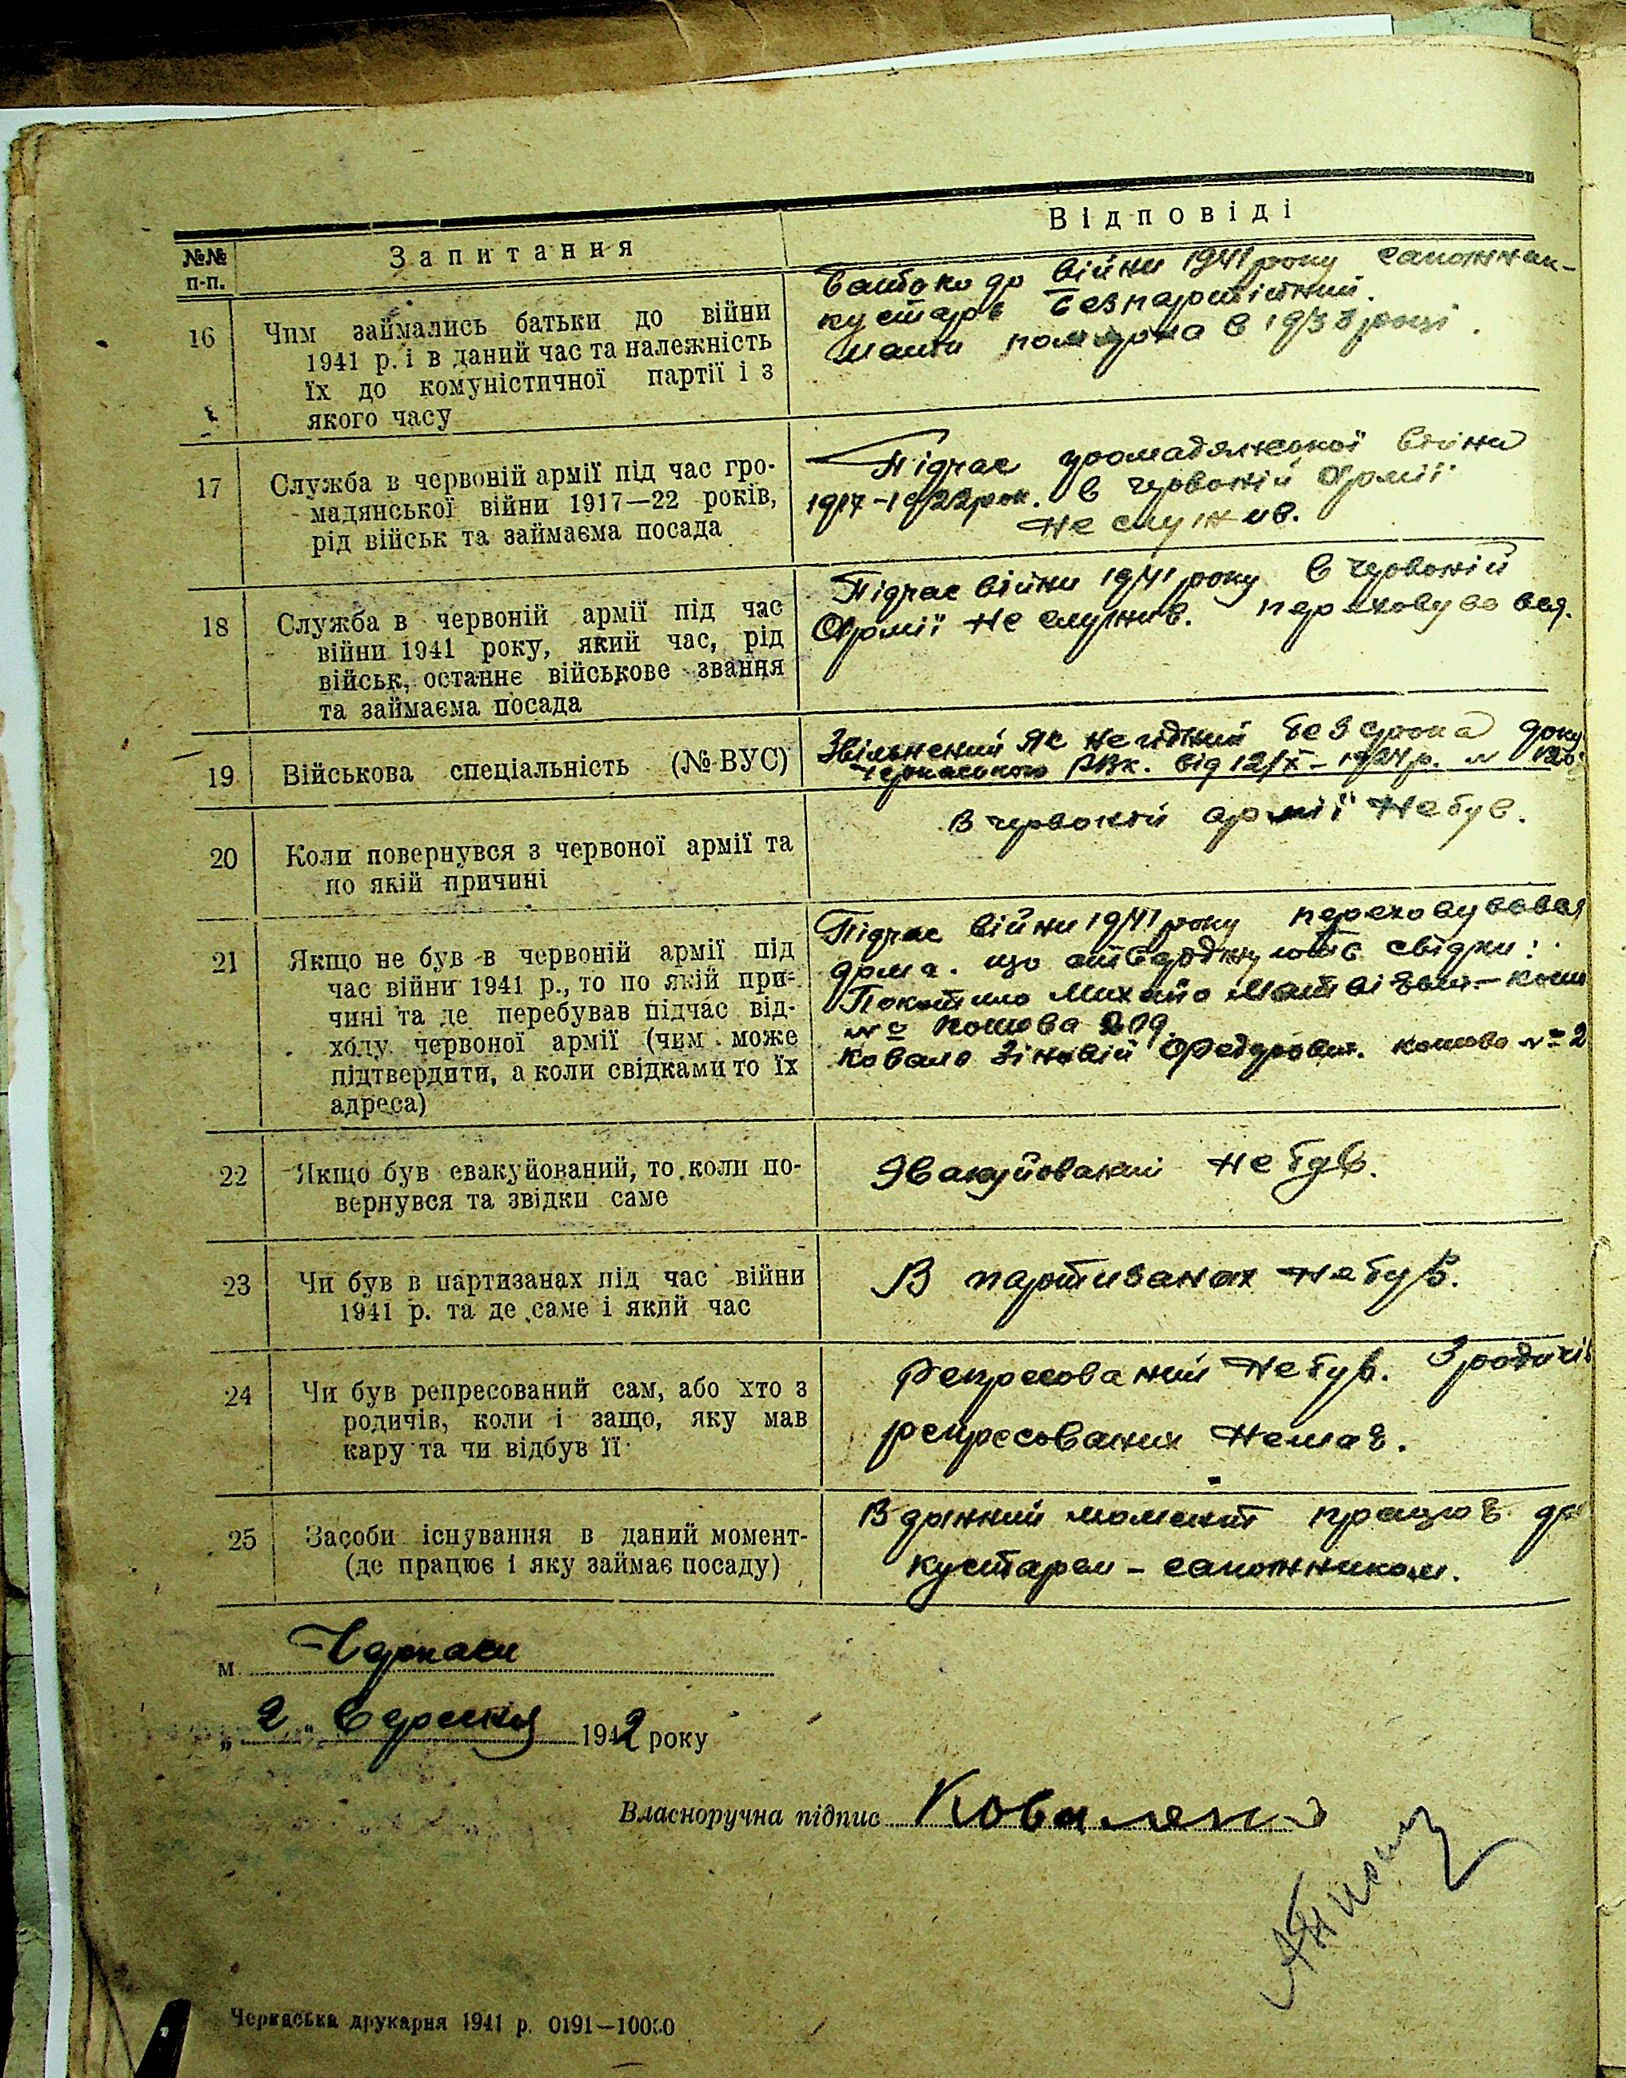 №№ п-п. Запитання Відповіді
16 Чим займались батьки до війни
1941 р. і в даний час та належність
їх до комуністичної партії і з
якого часу
Батько до війни 1941 року сапожник-
кустарь безпартійний.
Мати померла в 1933 році.
17 Служба в червоній армії під час гро-
мадянської війни 1917—22 років,
рід військ та займаєма посада
Підчас громадянської війни
1917-1922 рок. в червоній Армії
не служив.
18 Служба в червоній армії під час
війни 1941 року, який час, рід
військ, останнє військове звання
та займаєма посада
Підчас війни 1941 року в червоній
Армії не служив. переховувався.
19 Військова спеціальність (№ ВУС)
Звільнений як негідний без срока
Черкаського РВК. від 12/X-
20 Коли повернувся з червоної армії та
по якій причині
В червоній армії не був.
21 Якщо не був в червоній армії під
час війни 1941 р., то по якій при-
чині та де перебував підчас від-
ходу червоної армії (чим може
підтвердити, а коли свідками то їх
адреса)
Підчас війни 1941 року переховувався
дома. що свідки:
Покотило Михайло
№
Коваль Зіновій Федорович. №
22 Якщо був евакуйований, то коли по-
вернувся та звідки саме
Явакуйований не був.
23 Чи був в партизанах під час війни
1941 р. та де саме і який час
В партизанах не був.
24 Чи був репресований сам, або хто з
родичів, коли і защо, яку мав
кару та чи відбув її
Репресований не був. З родичів
репресованих немає.
25 Засоби існування в даний момент
(де працює і яку займає посаду)
В данний момент працює
кустарем - сапожником.
м. Черкаси
„2" Вересня 1942 року
Власноручна підпис Коваленко
Черкаська друкарня 1941 р. 0191—10000